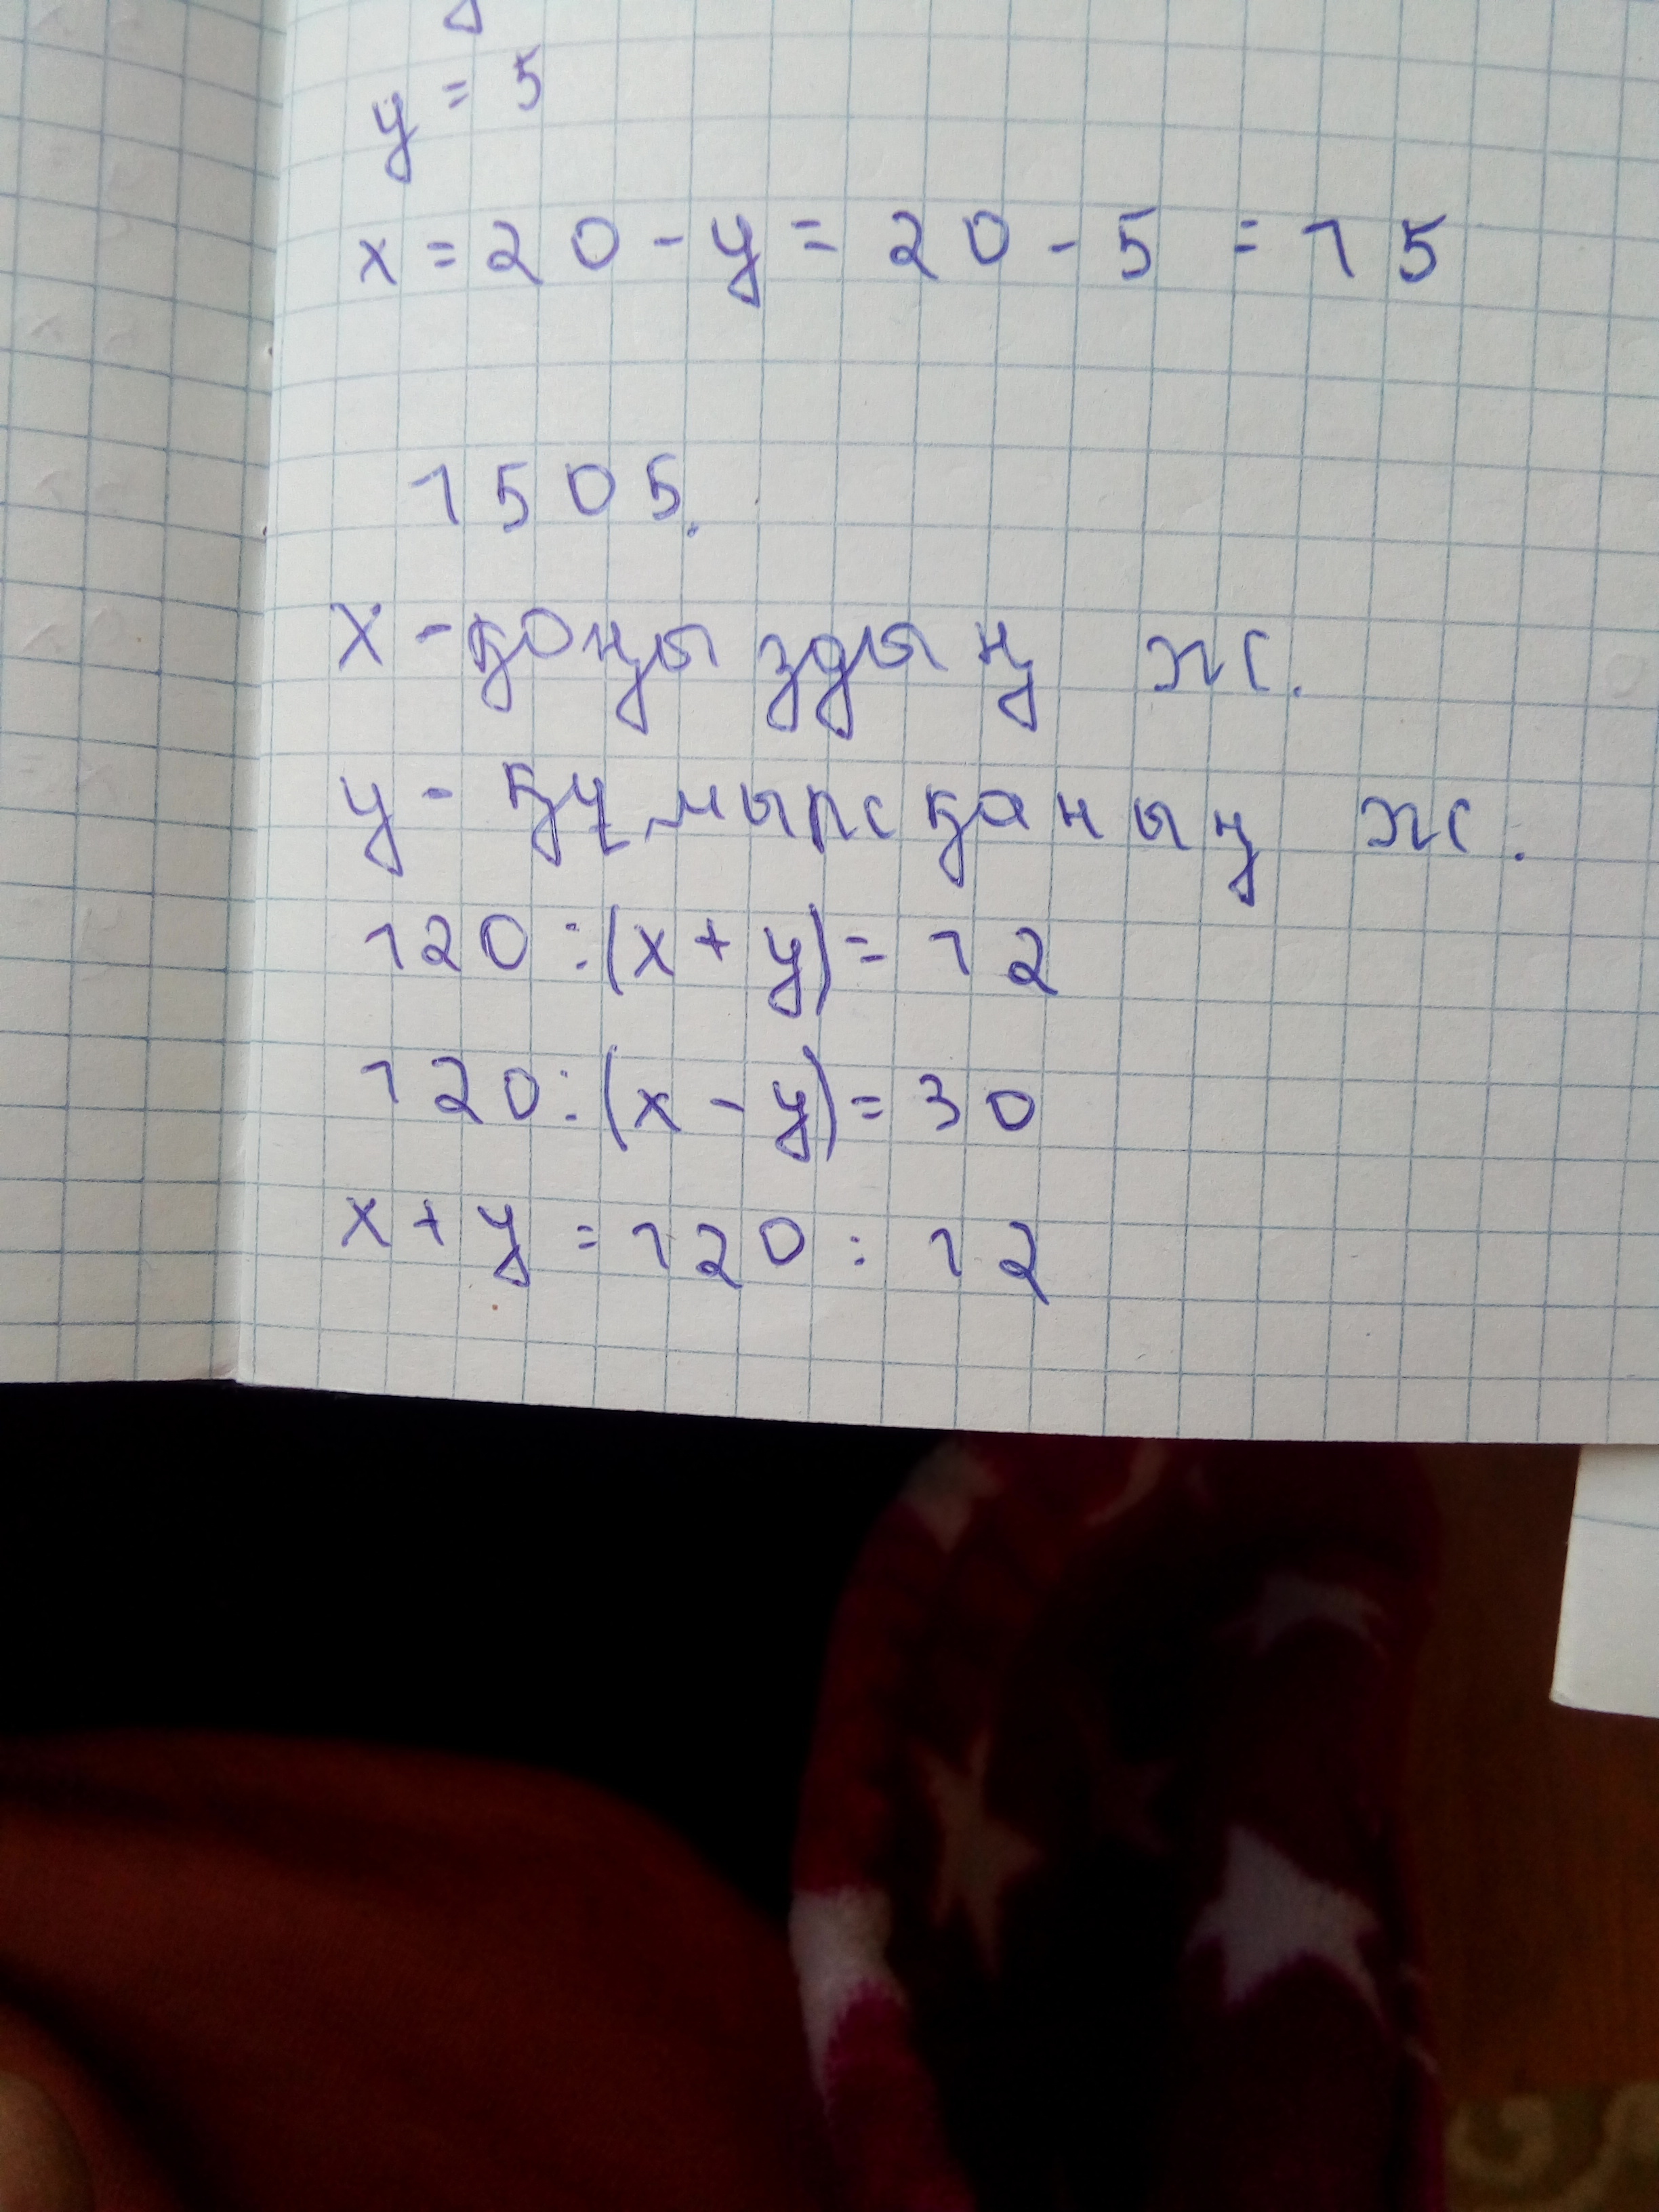 y = 5
x = 20 - y = 20 - 5 = 15
1505.
x - қоңыздың ж.
y - құмырсқаның ж.
120 : (x + y) = 12
120 : (x - y) = 30
x + y = 120 : 12